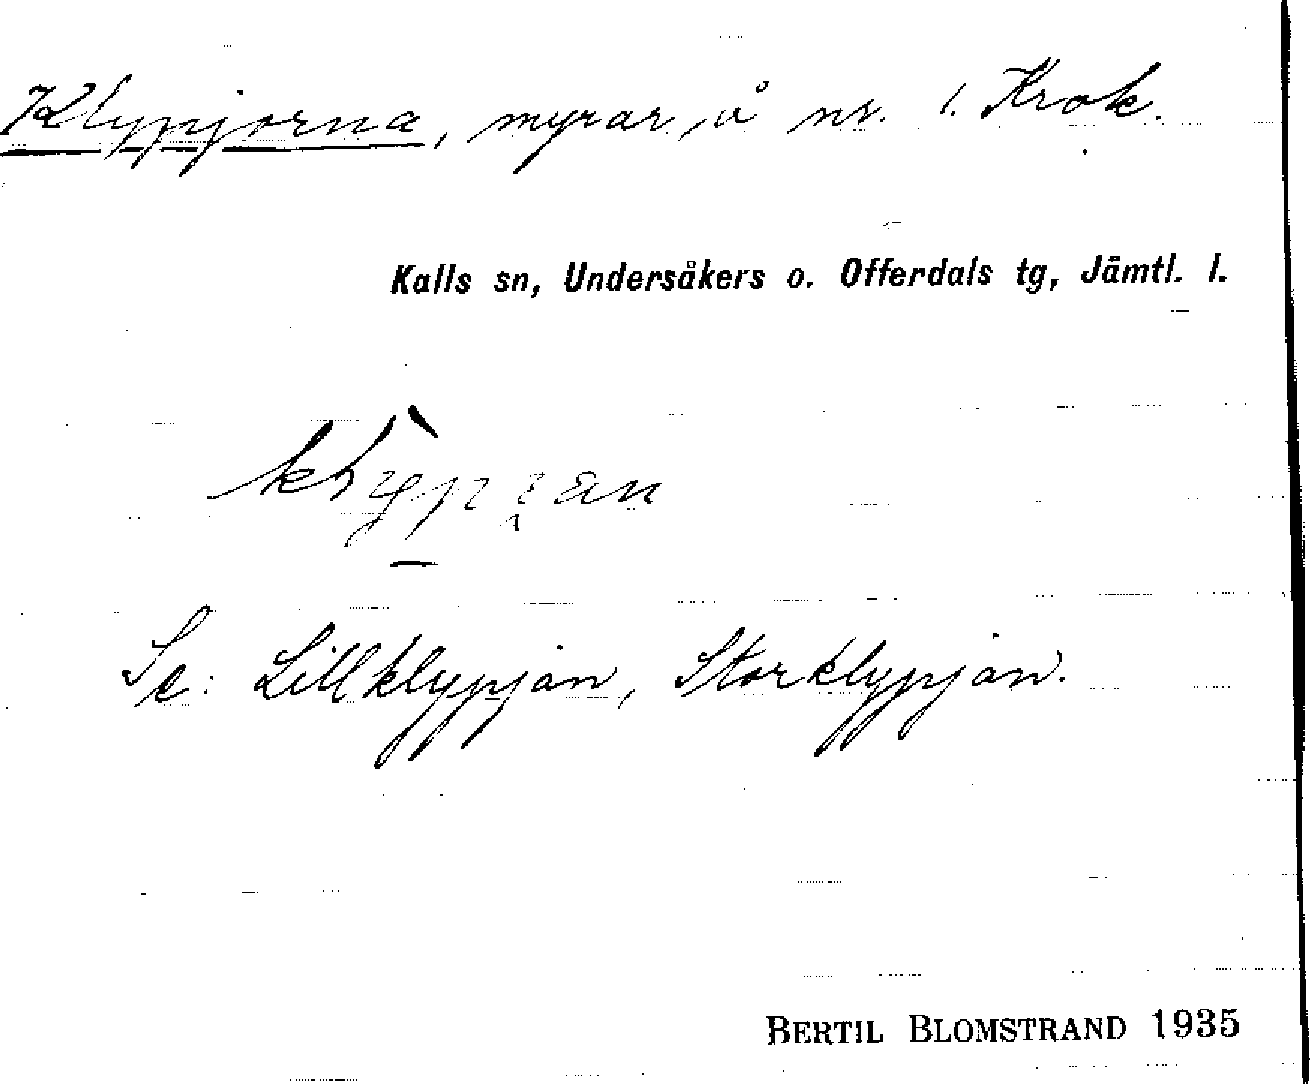 Klypjorna, myrar, å nr. 1. Krok.
Kalls sn, Undersåkers o. Offerdals tg, Jämtl. l.
Se: Lillklypjan, Storklypjan.
BERTIL BLOMSTRAND 1935